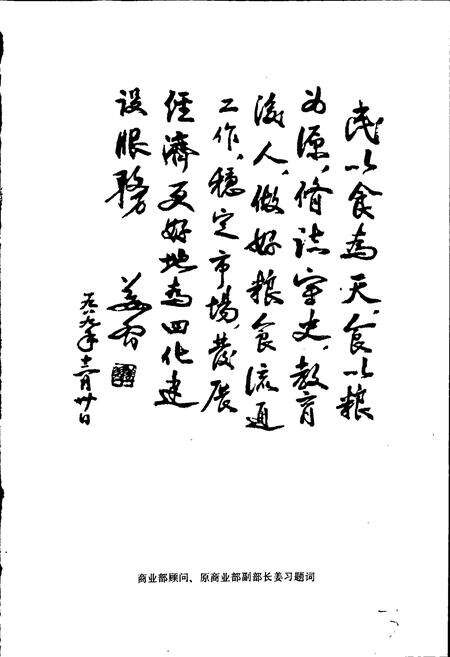 民以食为天，食以粮
为源，修誌宝史，教育
後人，做好粮食流通
工作，穩定市場，发展
经濟更好地为四化建
设服務
姜习
一九八九年十二月廿日
商业部顾问、原商业部副部长姜习题词